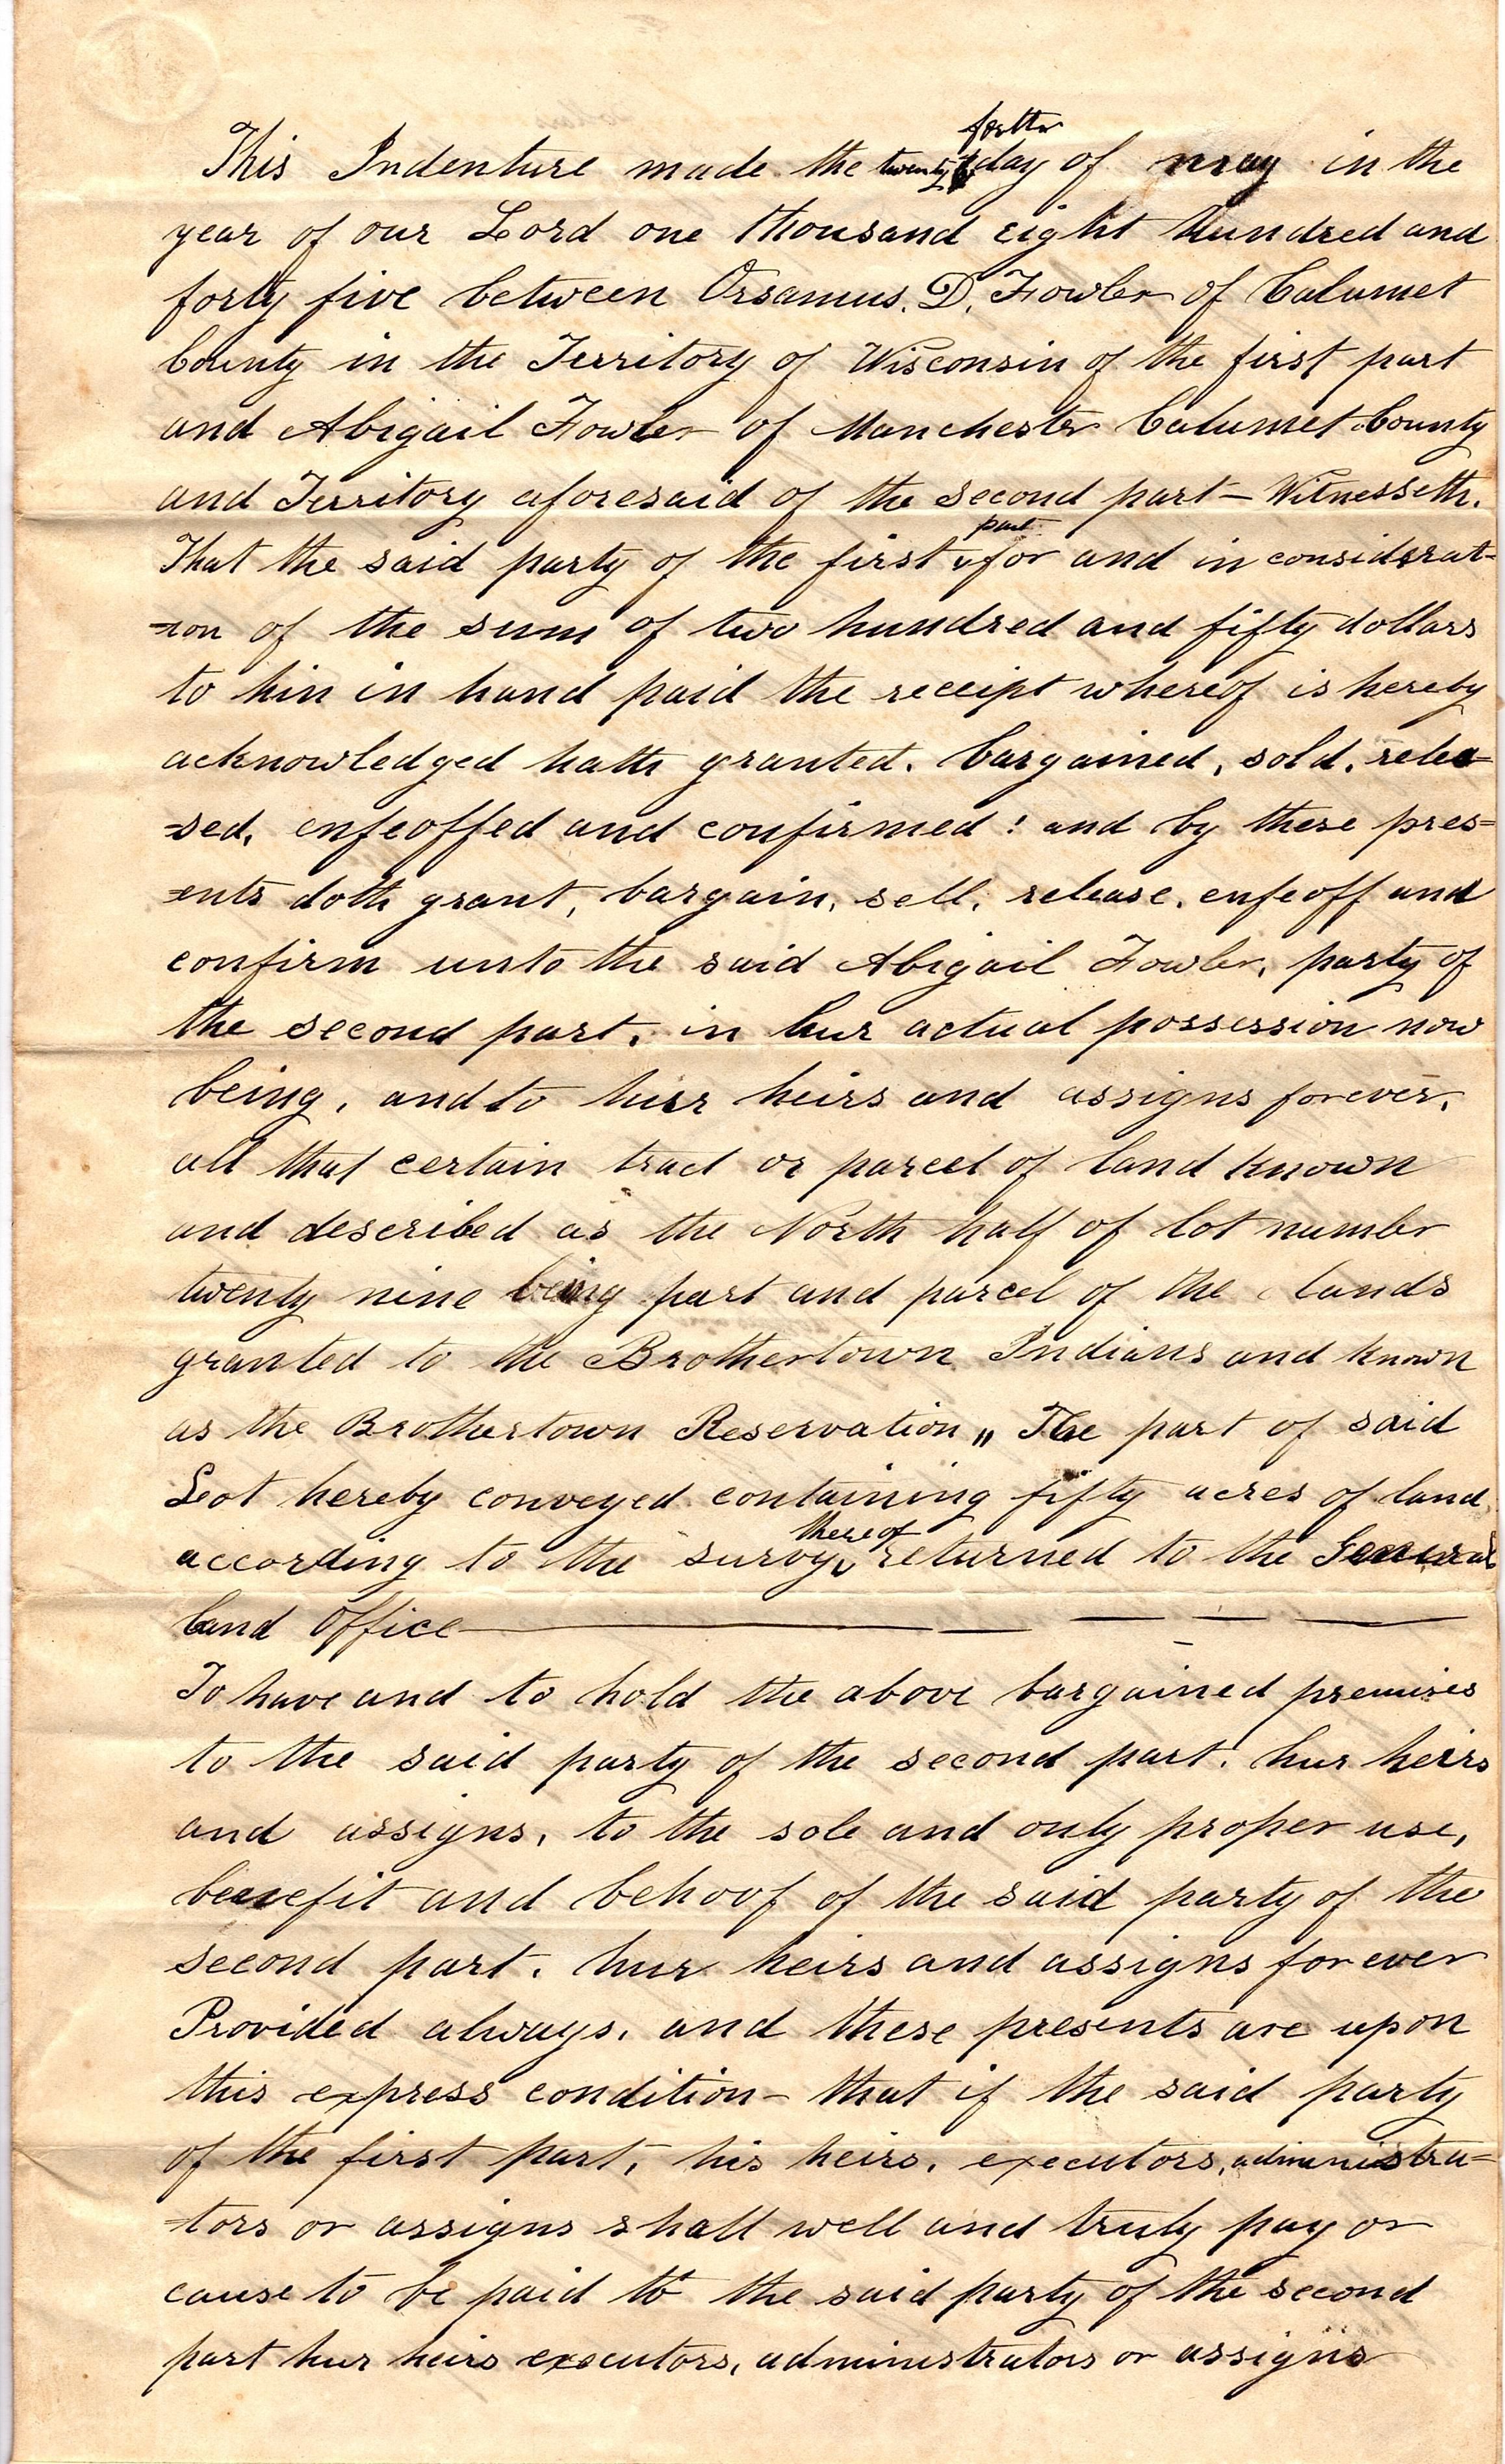 forth
This Indenture made the twenty day of may in the
year of our Lord one thousand eight hundred and
forty five between Orsamus. D. Fowler of Calumet
County in the Territory of Wisconsin of the first part
and Abigail Fowler of Manchester Calumet County
and Territory aforesaid of the second part — Witnesseth.
part
That the said party of the first for and in considerat=
=ion of the sum of two hundred and fifty dollars
to hin in hand paid the receipt whereof is hereby
acknowledged hath granted. bargained, sold. relea=
=sed, enfeoffed and confirmed: and by these pres=
=ents doth grant, bargain, sell, release. enfeoff and
confirm unto the said Abigail Fowler, party of
the second part. in hur actual possession now
being, and to hur heirs and assigns forever,
all that certain tract or parcel of land known
and described as the North half of lot number
twenty nine being part and parcel of the lands
granted to the Brothertown Indians and known
as the Brothertown Reservation„ The part of said
Leot hereby conveyed containing fifty acres of land
thereof
according to the survy, returned to the General
land Office
To have and to hold the above bargained premises
to the said party of the second part. hur heirs
and assigns, to the sole and only proper use,
benefit and behoof of the said party of the
second part. hur heirs and assigns forever
Provided always, and these presents are upon
this express condition — that if the said party
of the first part, his heirs. executors, administra=
=tors or assigns shall well and truly pay or
cause to be paid to the said party of the second
part hur heirs executors, administrators or assigns